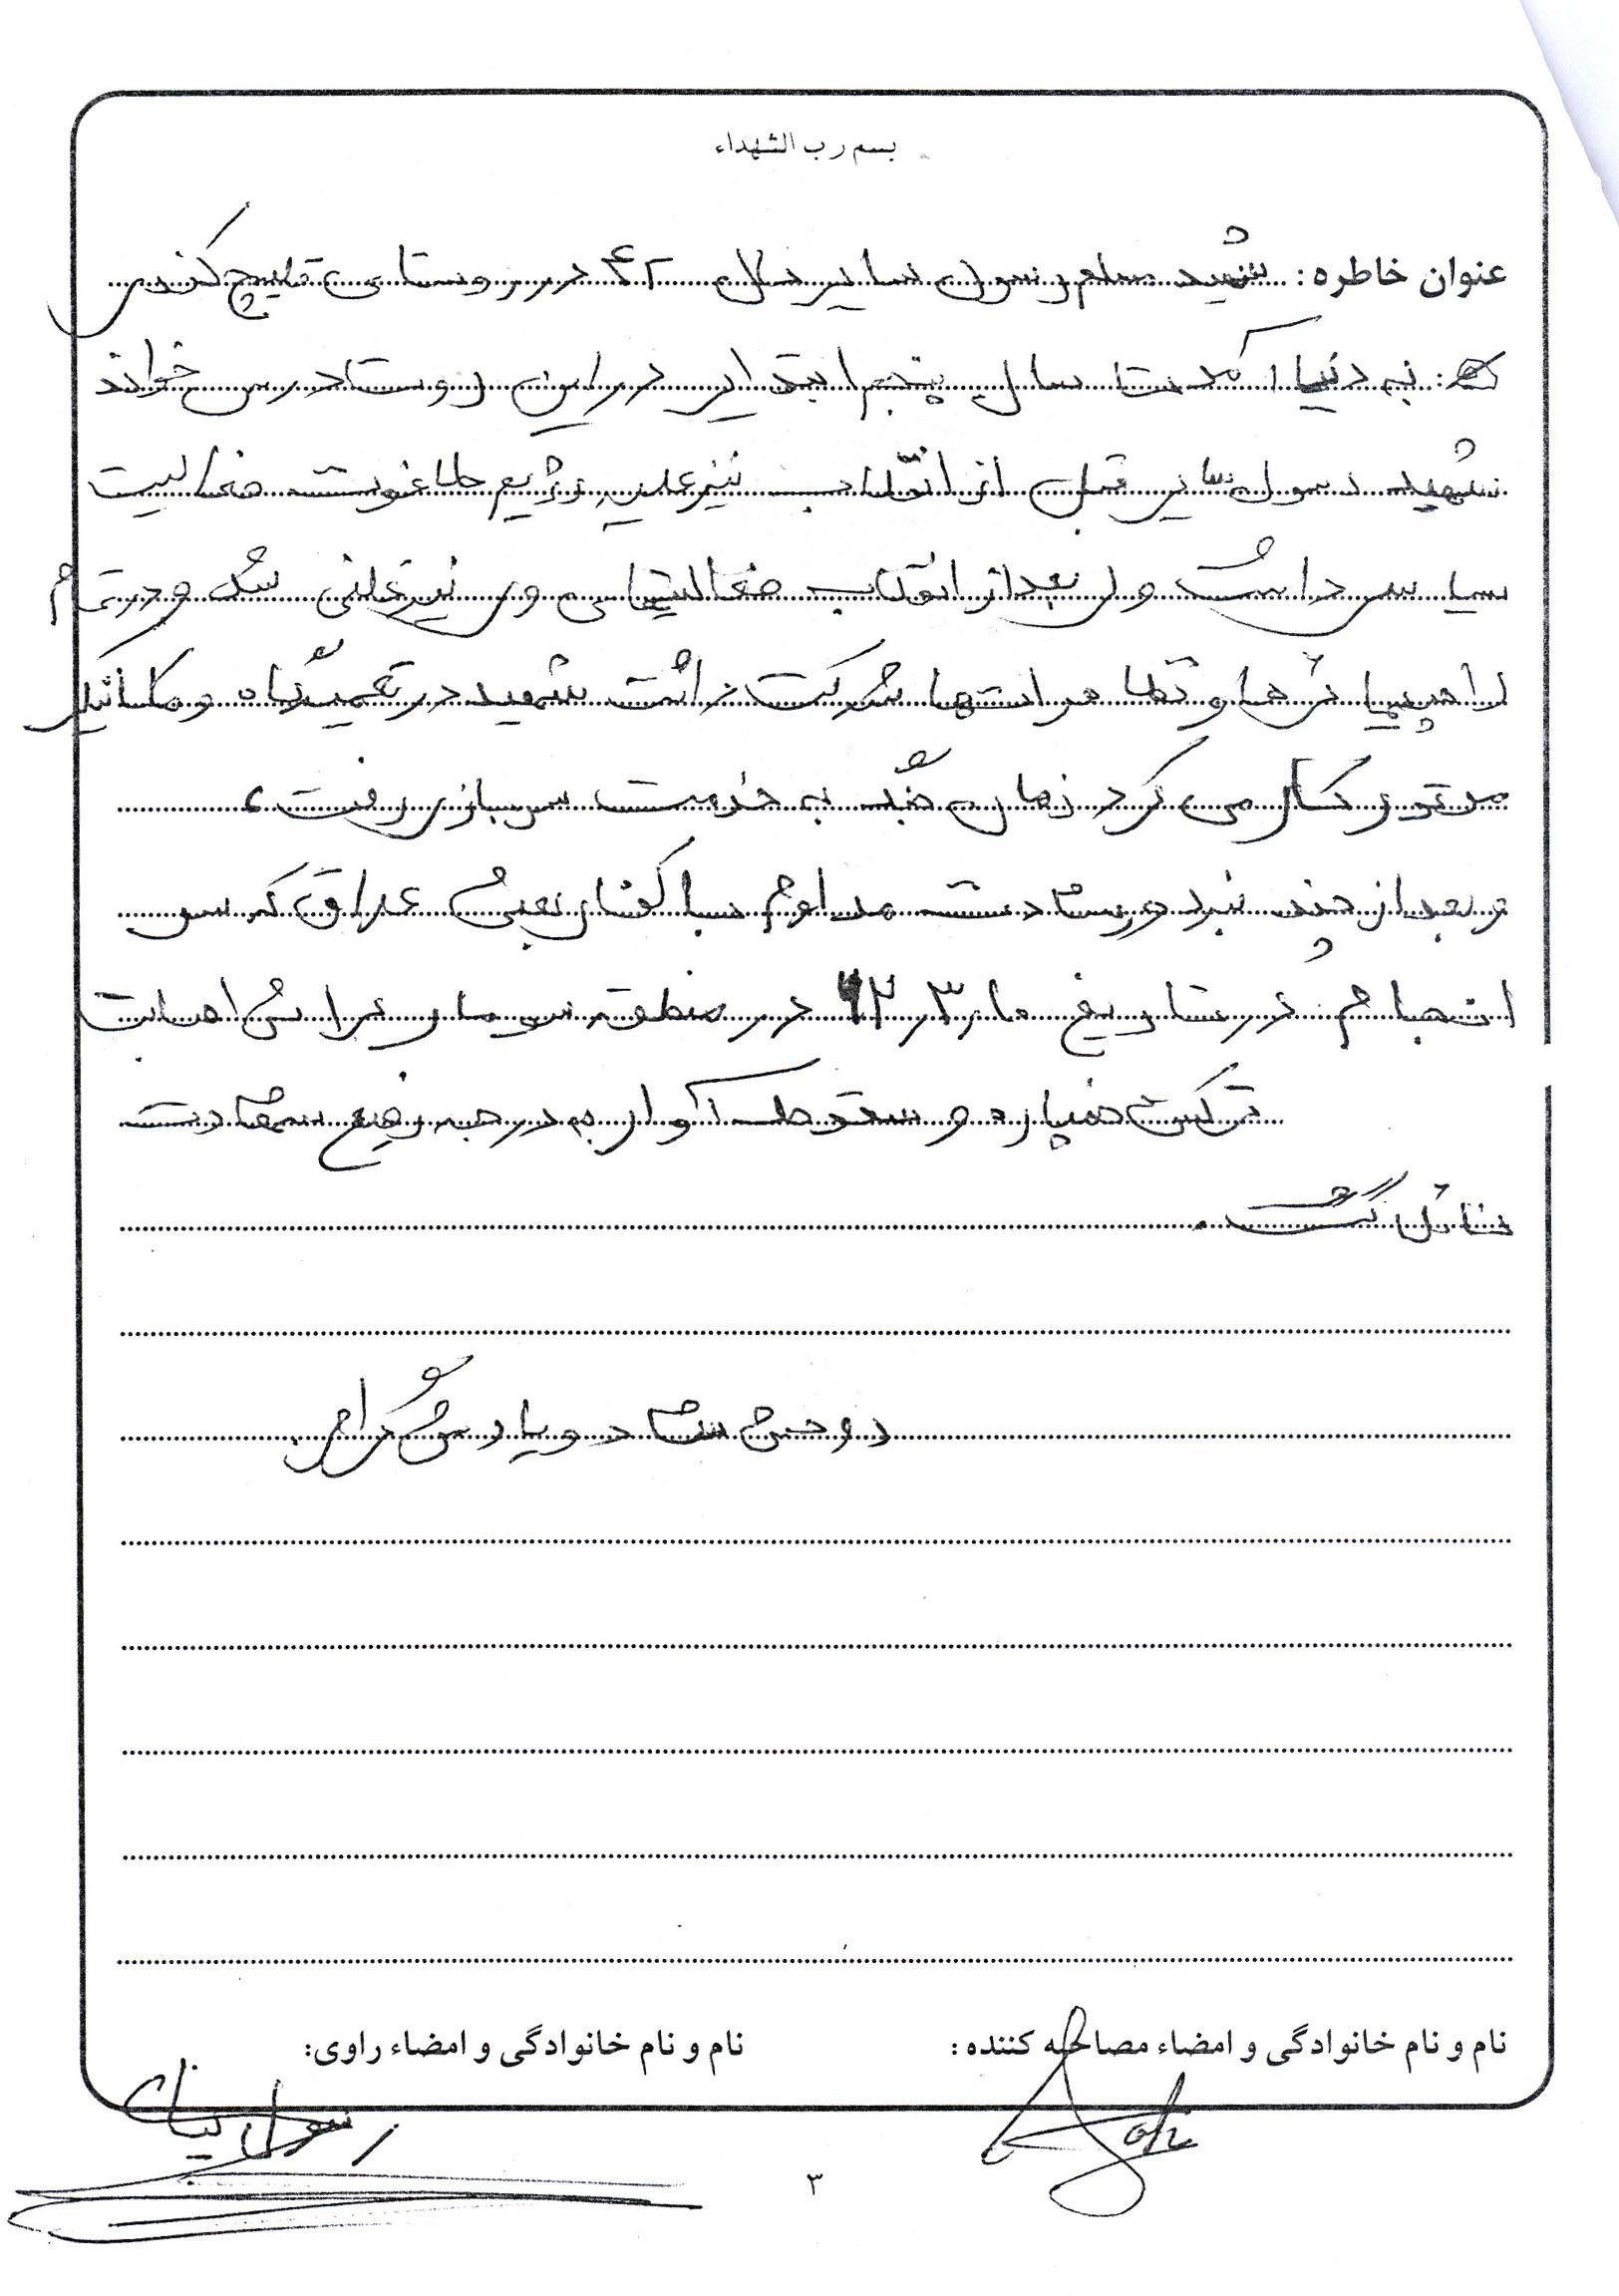 بسم رب الشهداء
عنوان خاطره: شهید رسول سال ۴۲ در روستای قلیچ کندی
به دنیا آمد تا سال پنجم ابتدایی در این روستا درس خواند
شهید رسول قبل از انقلاب نیز علیه رژیم طاغوت فعالیت
سیاسی داشت ولی بعد از انقلاب فعالیتهای وی نیز علنی شد و در تمام
راهپیمائی ها و تظاهراتها شرکت داشت شهید در تعمیرگاه و مکانیکی
موتور کار می کرد زمان جنگ به خدمت سربازی رفت،
و بعد از چند نبرد و رشادت مداوم با کفار بعثی عراق که سر
انجام در تاریخ ۱۰ر۳ر۶۲ در منطقه سومار بر اثر اصابت
ترکش خمپاره و سقوط آوار به درجه رفیع شهادت
نائل گشت.
روحش شاد و یادش گرامی.
نام و نام خانوادگی و امضاء مصالحه کننده:
نام و نام خانوادگی و امضاء راوی:
رسول
۳